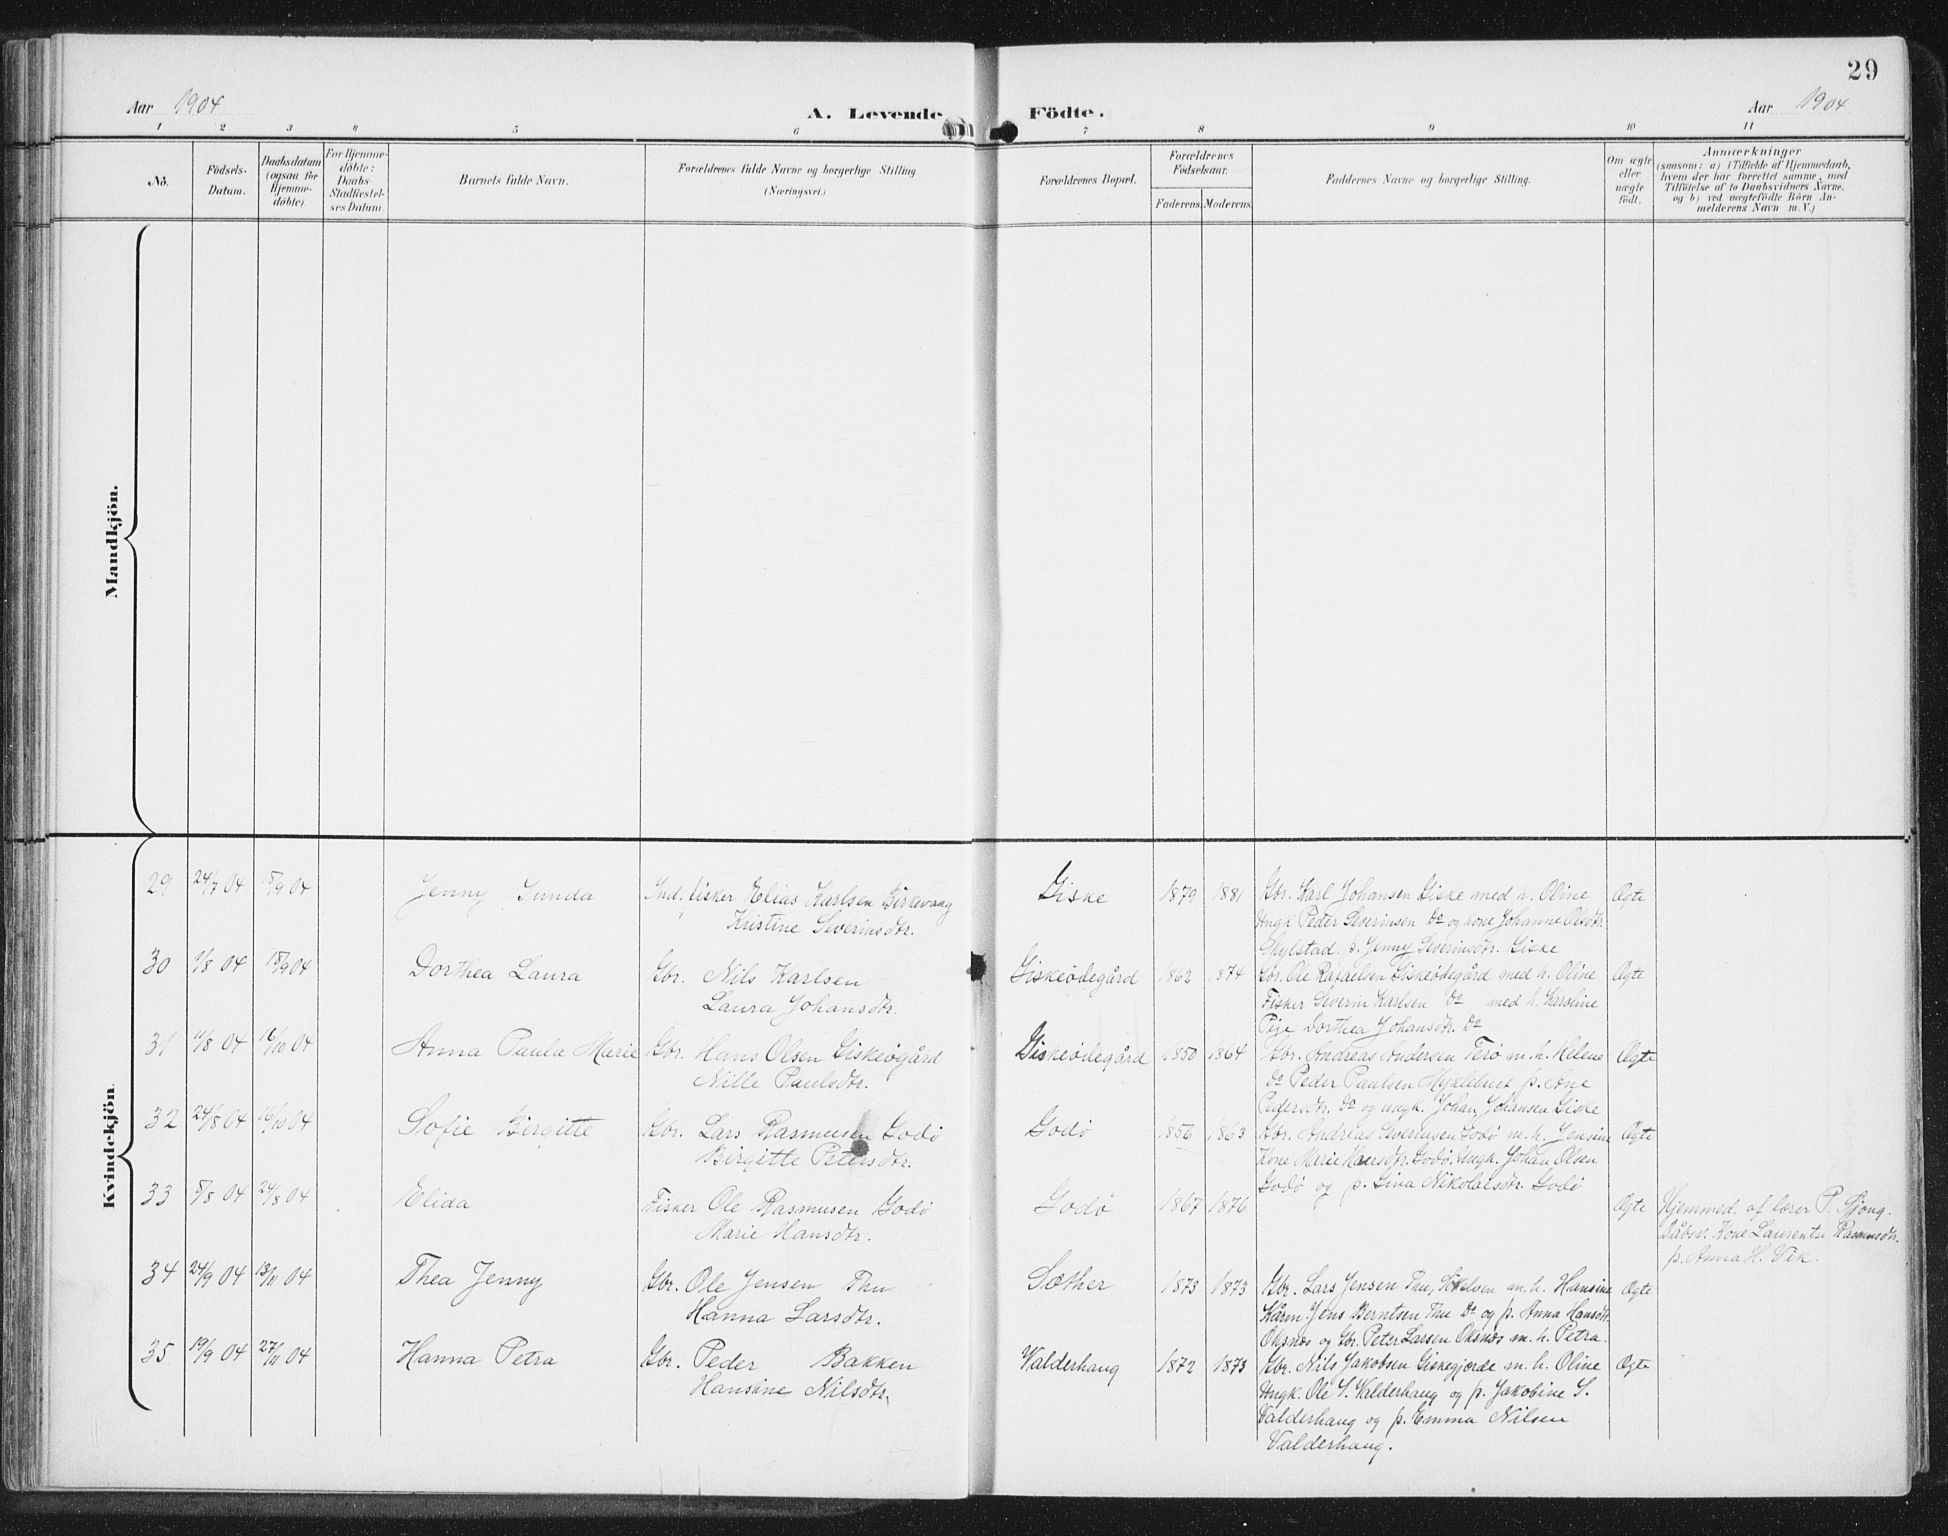 29
Aar 1904
A. Levende Födte.
Aar 1904
1 2 3 4 5 6 7 8 9 10 11
No.
Födsels-
Datum.
Daabsdatum
(ogsaa for
Hjemme-
døbte).
For Hjemme-
døbte:
Daabs-
Stadfæstel-
ses Datum.
Barnets fulde Navn.
Forældrenes fulde Navne og borgerlige Stilling
(Næringsvei)
Forældrenes Bopæl.
Forældrenes
Fødselsaar.
Faderens. Moderens.
Faddernes Navne og borgerlige Stilling.
Om ægte
eller
uægte
født.
Anmærkninger
(saasom: a) i Tilfælde af Hjemmedaab,
hvem der har forrettet samme, med
Tilføielse af to Daabsvidners Navne,
og b) ved uægtefødte Börn An-
melderens Navn m. V.)
Mandkjön.
Kvindekjön.
29 24/7 04 18/9 04 Jenny Gunda Ind. fisker Elias Karlsen Birkevaag
Kristine Severinsdtr.
Giske 1879 1881 Gbr. Karl Johansen Giske med h. Oline
Ungk Peder Severinsen Do og kone Johanne Olsdtr.
Skylstad, p. Jenny Severinsdtr. Giske
Ægte
30 /8 04 18/9 04 Dorthea Laura Gbr. Nils Karlsen
Laura Johansdtr.
Giskeødegård 1862 1874 Gbr. Ole Rafaelsen Giskeødegård med h. Oline
Fisker Severin Karlsen Do med h. Karoline
Pige Dorthea Johansdtr. Do
Ægte
31 11/8 04 16/10 04 Anna Paula Marie Gbr. Hans Olsen Giskeøgård
Nille Paulsdtr.
Giskeødegård 1850 1864 Gbr. Andreas Andersen Terø m. h. Helene
Do Peder Paulsen Myklebust p. Ane
Pedersdtr. Do og ungk. Johan Johansen Giske
Ægte
32 24/8 04 16/10 04 Sofie Birgitte Gbr. Lars Rasmusen Godø
Birgitte Petersdtr.
Godø 1856 1863 Gbr. Andreas Severinsen Godø m. h. Jensine
Kone Marie Hansdtr. Godø. Ungk. Johan Olsen
Godø og p. Gina Nikolaisdtr. Godø
Ægte
33 8/8 04 24/8 04 Elida Fisker Ole Rasmusen Godø
Marie Hansdtr.
Godø 1867 1876 Ægte Hjemmed. af lærer P.
Dåbsv. Kone Laurentse Rasmusdtr.
p. Anna H. Vik.
34 24/9 04 13/11 04 Thea Jenny Gbr. Ole Jensen Thu
Hanna Larsdtr.
Sæther 1873 1873 Gbr. Lars Jensen Thu, m. h. Hansine
Jens Berntsen Thu Do og p. Anna Hansdtr.
Oksnes og Gbr. Peter Larsen Oksnes m. h. Petra.
Ægte
35 19/9 04 27/11 04 Hanna Petra Gbr. Peder Bakken
Hansine Nilsdtr.
Valderhaug 1872 1873 Gbr. Nils Jakobsen Giskegjerde m. h. Oline
Ungk. Ole S. Valderhaug og p. Jakobine S.
Valderhaug og p. Emma Nilsen
Valderhaug.
Ægte